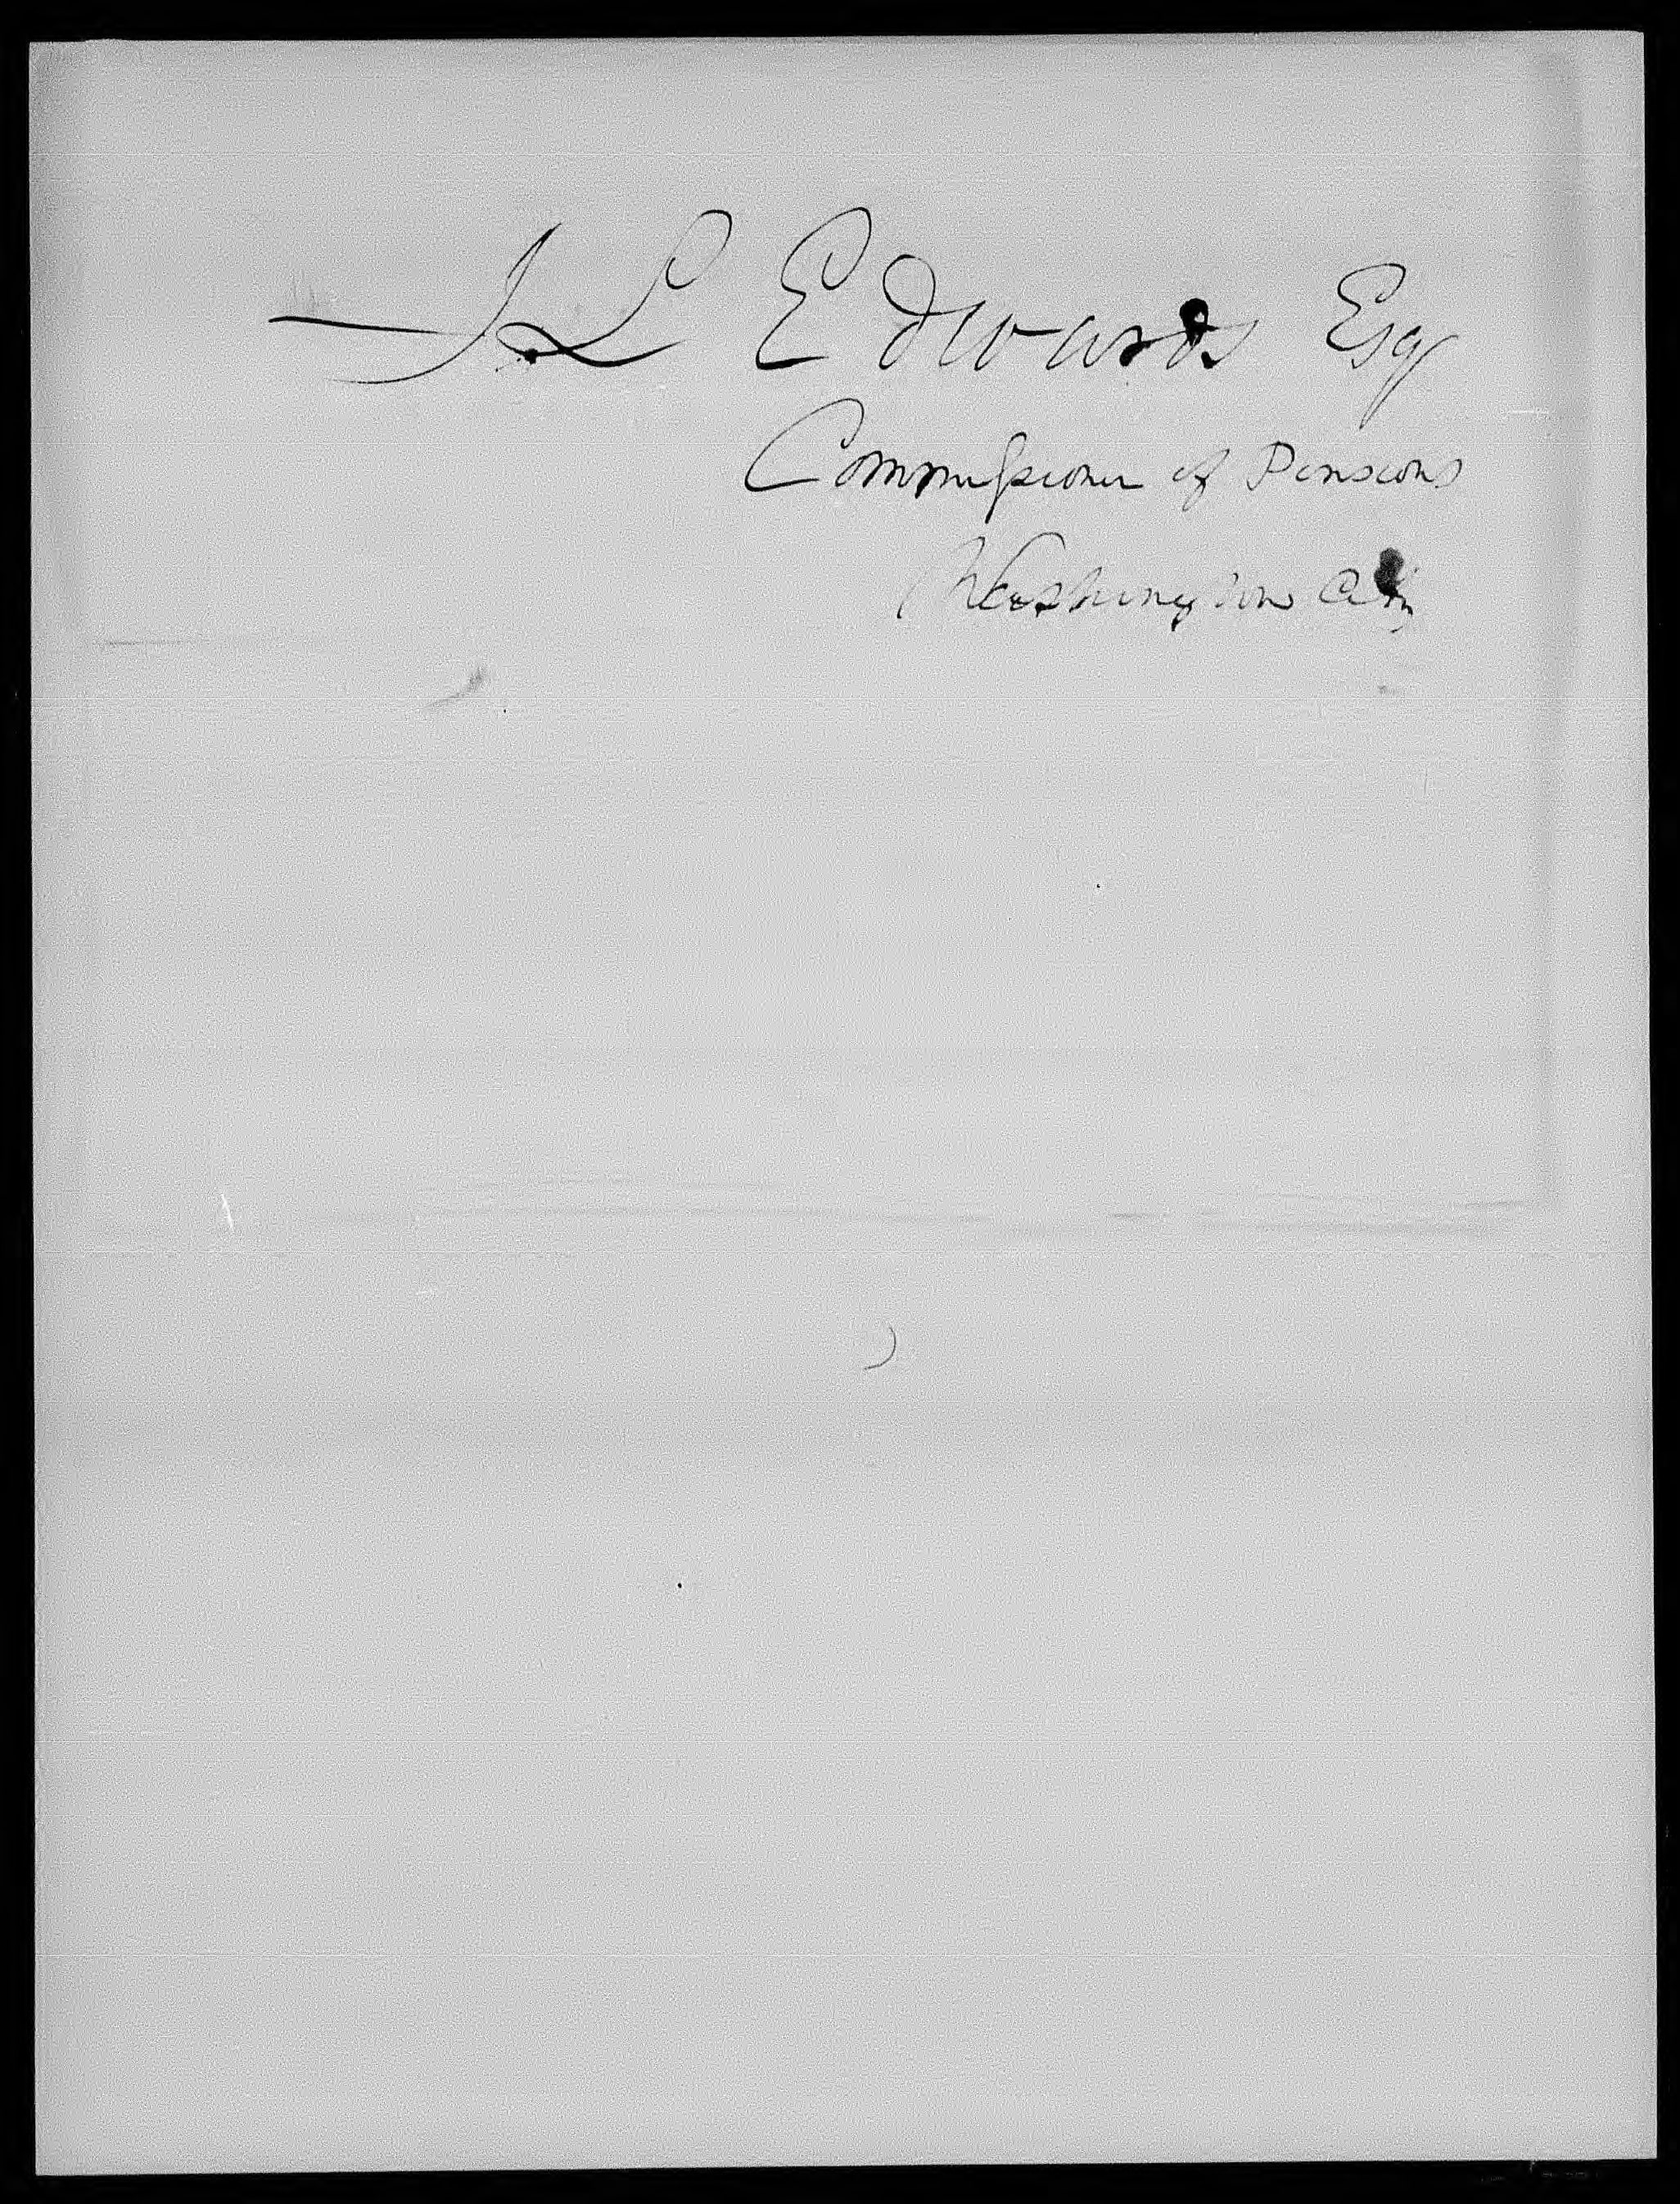 J L Edwards Esq
Commissioner of Pensions
Washington City